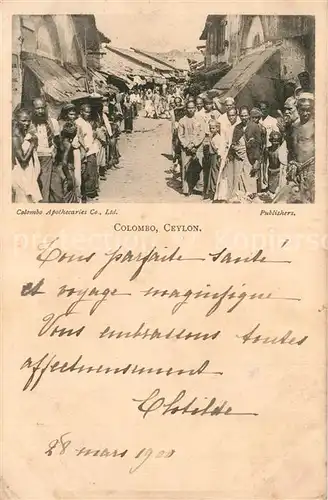 Colombo Apothecaries Co., Ltd. Publishers.
COLOMBO, CEYLON.
Tous parfaite santé
et voyage magnifique
Vous embrassons toutes
affectueusement
Clotilde
28 mars 1900